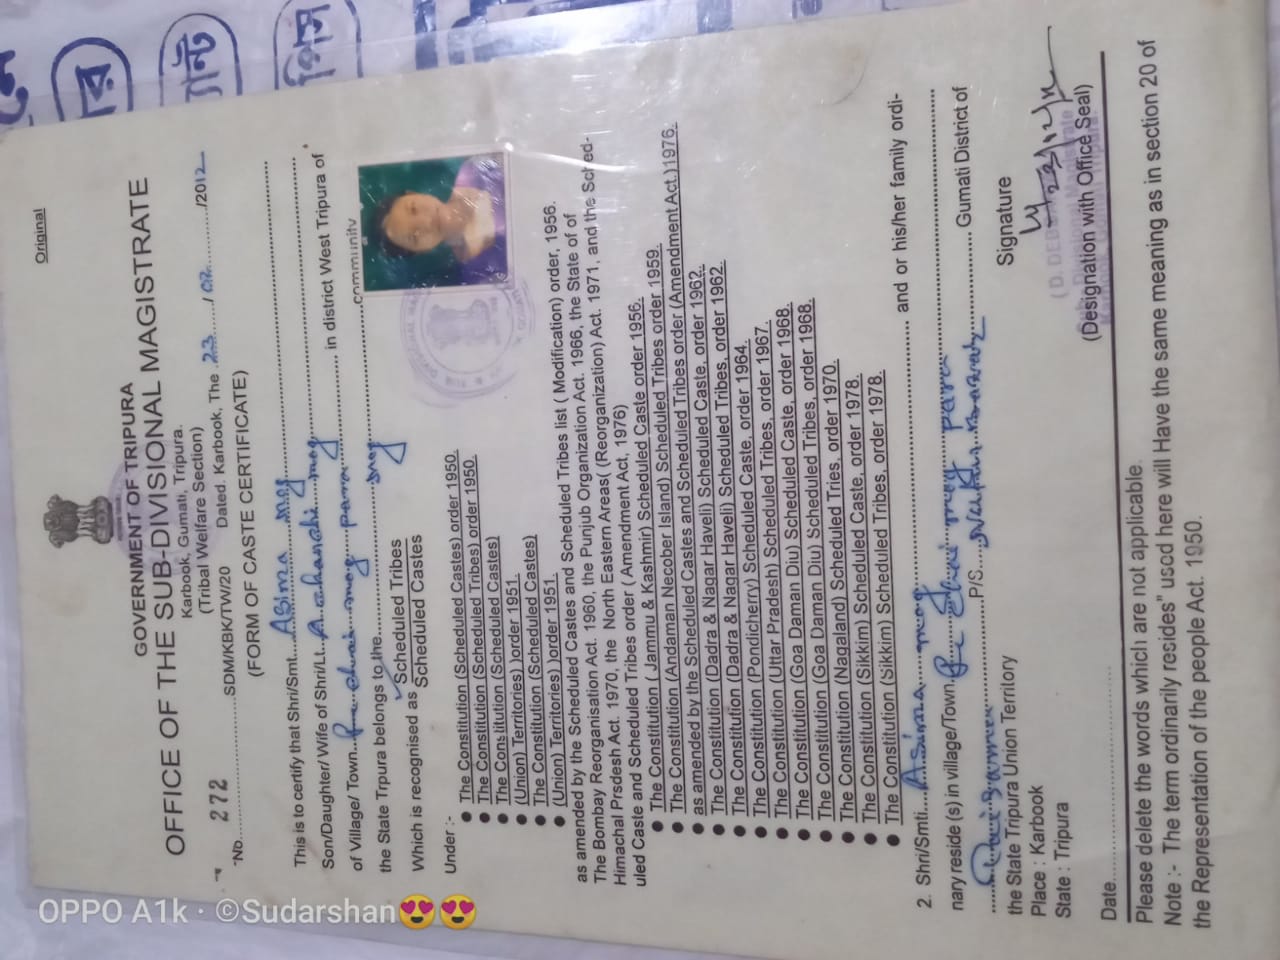 Original
GOVERNMENT OF TRIPURA
OFFICE OF THE SUB-DIVISIONAL MAGISTRATE
Karbook, Gumati, Tripura.
(Tribal Welfare Section)
No. 272 SDM/KBK/TW/20 Dated. Karbook, The 23 / /2012
(FORM OF CASTE CERTIFICATE)
This is to certify that Shri/Smt. Asima mog
Son/Daughter/ Wife of Shri/Lt. mog in district West Tripura of
of Village/ Town mog para community
the State Trpura belongs to the mog
Which is recognised as Scheduled Tribes
Scheduled Castes
Under :-
● The Constitution (Scheduled Castes) order 1950
● The Constitution (Scheduled Tribes) order 1950.
● The Constitution (Scheduled Castes)
(Union) Territories) order 1951.
● The Constitution (Scheduled Castes)
● (Union) Territories) order 1951.
as amended by the Scheduled Castes and Scheduled Tribes list ( Modification) order, 1956.
The Bombay Reorganisation Act. 1960, the Punjub Organization Act. 1966, the State of of
Himachal Prsdesh Act. 1970, the North Eastern Areas( (Reorganization) Act. 1971, and the Sched-
uled Caste and Scheduled Tribes order ( Amendment Act, 1976)
● The Constitution ( Janmu & Kashmir) Scheduled Caste order 1956.
● The Constitution (Andaman Necober Island) Scheduled Tribes order 1959.
● as amended by the Scheduled Castes and Scheduled Tribes order (Amendment Act.)1976.
● The Constitution (Dadra & Nagar Haveli) Scheduled Caste, order 1962.
● The Constitution (Dadra & Nagar Haveli) Scheduled Tribes, order 1962.
● The Constitution (Pondicherry) Scheduled Caste, order 1964.
● The Constitution (Uttar Pradesh) Scheduled Tribes, order 1967.
● The Constitution (Goa Daman Diu) Scheduled Caste, order 1968.
● The Constitution (Goa Daman Diu) Scheduled Tribes, order 1968.
● The Constitution (Nagaland) Scheduled Tries, order 1970.
● The Constitution (Sikkim) Scheduled Caste, order 1978.
● The Constitution (Sikkim) Scheduled Tribes, order 1978.
2. Shri/Smti. Asima mog and or his/her family ordi-
nary reside (s) in village/Town mog para
P/S. Gumati District of
the State Tripura Union Territory
Place : Karbook
State : Tripura
Signature
(Designation with Office Seal)
Date
Please delete the words which are not applicable.
Note :- The term ordinarily resides" uscd here will Have the same meaning as in section 20 of
the Representation of the people Act. 1950.
OPPO A1k · ©Sudarshan😍😍